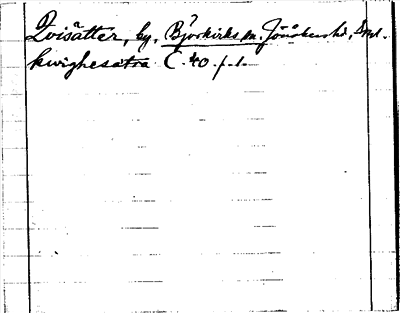 Qvisätter, by, Björkvirks sn. Jönåkers hd, Sml.
kwighesætra C. 40. f. 1.